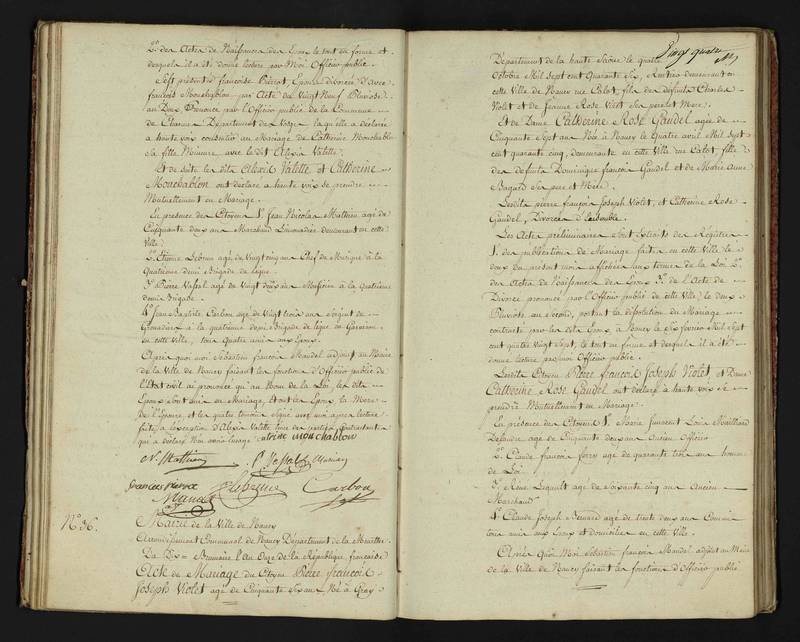 2° des Actes de Naissances des Epoux le tout en forme et
desquels il a été donné lecture par Moi Officier public.
S'est présentée françoise Pierrot, Epouse divorcée d'avec
françois Mouchablon par Acte du Vingt Neuf Pluviose
an Deux Prononcé par l'Officier public de la Commune
de Charmes Département des Vosges laquelle a déclaré
à haute voix consentir au Mariage de Catherine Mouchablon
sa fille Mineure avec ledit Alexis Valette.
Et de suite lesdits Alexis Valette et Catherine
Mouchablon ont déclaré à haute voix se prendre
Mutuellement en Mariage.
En présence des Citoyens 1° Jean Nicolas Mathieu agé de
Cinquante deux ans Marchand Limonadier demeurant en cette
Ville.
2° Etienne Lebrun agé de Vingt cinq ans Chef de Musique à la
Quatrième demi Brigade de ligne.
3° Pierre Vassal agé de Vingt deux ans Musicien à la Quatrième
demi Brigade.
4° Jean Baptiste Carbon agé de Vingt trois ans Sergent de
Grenadiers à la quatrième demi Brigade de ligne en Garnison
en cette Ville, tous Quatre amis aux Epoux.
Après quoi moi Sébastien françois Mandel adjoint au Maire
de la Ville de Nancy faisant les fonctions d'Officier public de
l'Etat civil ai prononcé qu'au Nom de la Loi, lesdits
Epoux sont unis en Mariage, et ont les Epoux, la Mere
de l'Epouse, et les quatre témoins Signé avec moi après lecture
faite à l'exception d'Alexis Valette l'une des parties Contractantes
qui a déclaré Non avoir l'usage. catrine mouchablon
N. Mathieu P. Vassal
francois pierrot
Mandel Lebrun Carbon
N° 36. Mairie de la Ville de Nancy
Arrondissement Communal de Nancy Département de la Meurthe.
Du Brumaire l'An Onze de la République française
Acte de Mariage du Citoyen Pierre françois
Joseph Violet agé de Cinquante six ans Né à Gray
Vingt quatre
Département de la haute Saône le quatre
Octobre Mil sept cent Quarante Six, Rentier demeurant en
cette Ville de Nancy rue Callot, fils des défunts Charles
Violet et de Jeanne Rose Viett ses père et Mere.
Et de Dame Catherine Rose Gaudel agée de
Cinquante Sept ans Née à Nancy le Quatre avril Mil sept
cent quarante cinq, demeurante en cette Ville rue Callot fille
des défunts Dominique françois Gaudel et de Marie Anne
Bagard ses père et Mere.
Lesdits pierre françois Joseph Violet, et Catherine Rose
Gaudel, Divorcés d'Ensemble.
Les Actes préliminaires sont Extraits des Registres
1° des publications de Mariage faites en cette Ville le
deux du présent mois affichées aux termes de la Loi. 2°
des Actes de Naissances des Epoux 3° de l'Acte de
Divorce prononcé par l'Officier public de cette Ville le deux
Pluviose an Second, portant la dissolution du Mariage
contracté par lesdits Epoux à Nancy le Six février Mil Sept
cent quatre Vingt sept, le tout en forme et desquels il a été
donné lecture par moi Officier public.
Lesdits Citoyen Pierre françois Joseph Violet, et Dame
Catherine Rose Gaudel ont déclaré à haute voix se
prendre Mutuellement en Mariage.
En présence des Citoyens 1° Marie furscent Louis Mailliard
Delandre agé de Cinquante deux ans Ancien Officier
2° Claude françois ferry agé de quarante trois ans homme
de Loi.
3° René Lequilt agé de Soixante cinq ans Ancien
Marchand.
4° Claude Joseph Renard agé de trente deux ans Commis
tous amis aux Epoux et domiciliés en cette Ville.
Après Quoi Moi Sébastien françois Mandel adjoint au Maire
de la Ville de Nancy faisant les fonctions d'Officier public